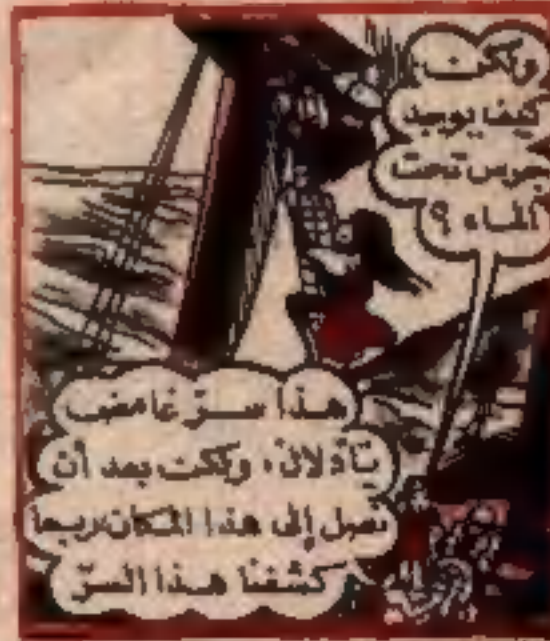 ولكن،
كيف يوجد
جرس تحت
الماء ؟
هـذا سـرّ غامض
يَا دلان، ولكن بعد أن
نصل إلى هذا المكان ربما
كشفنا هـذا السرّ